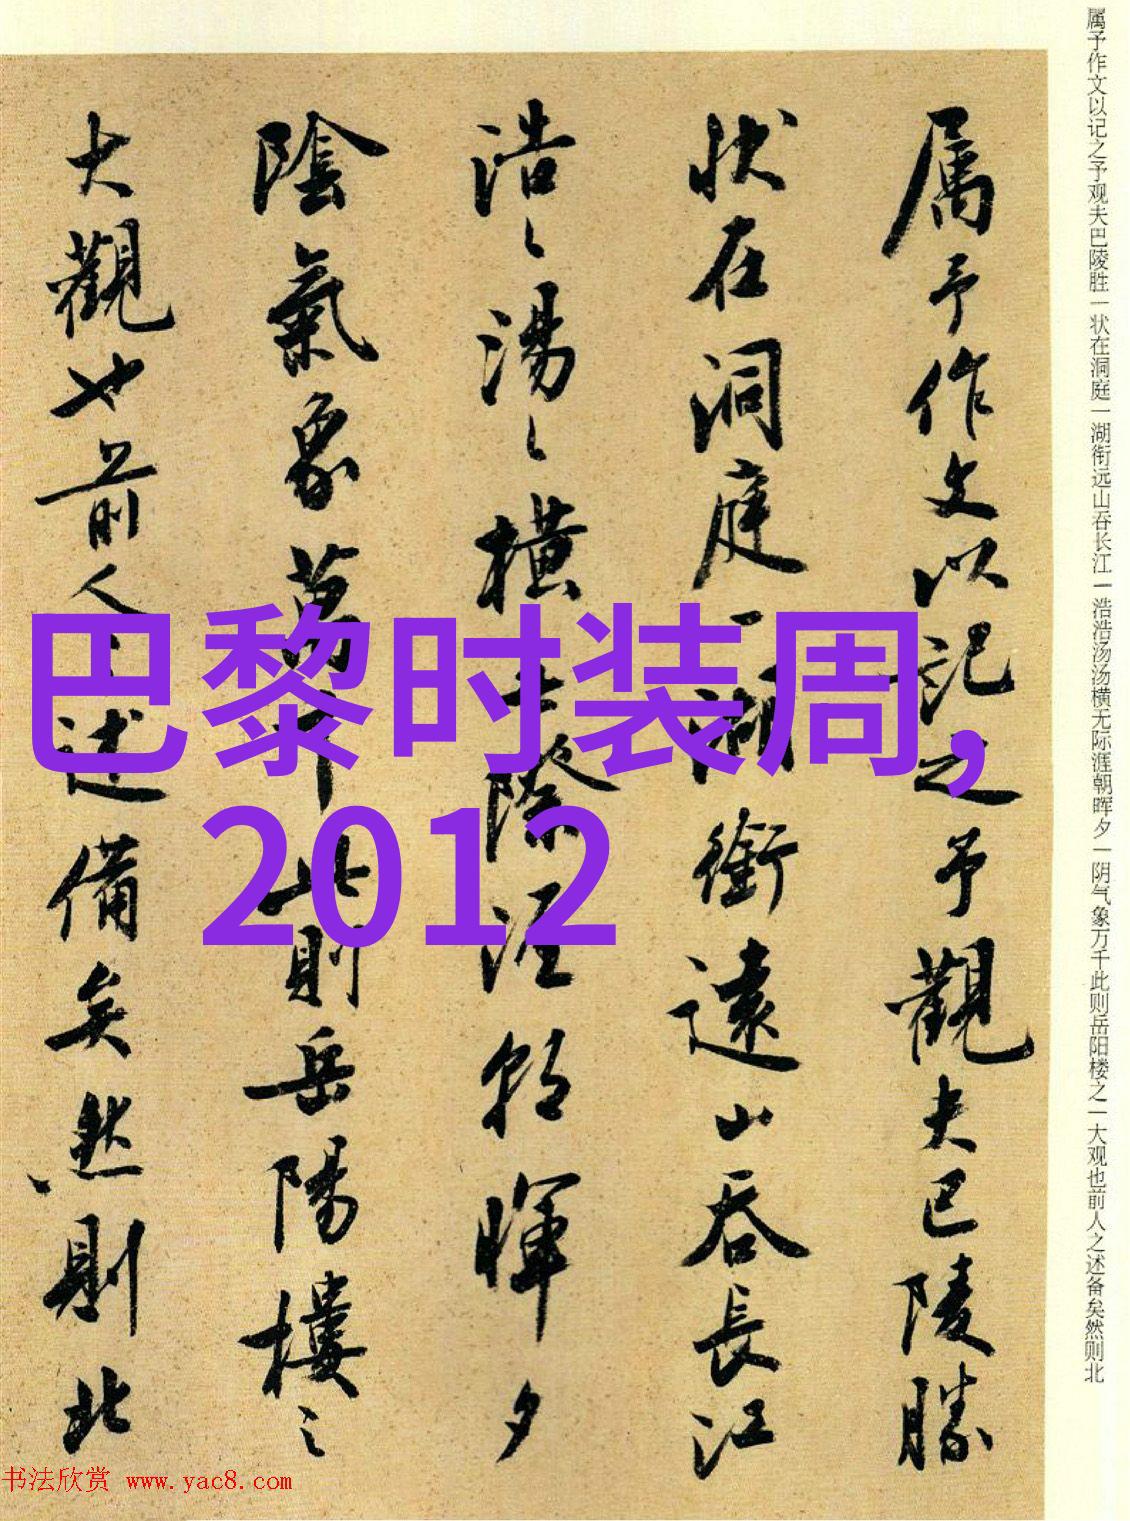 属予作文以记之予观夫巴陵胜一状在洞庭一湖衔远山吞长江一浩浩汤汤横无际涯朝晖夕一阴气象万千此则岳阳楼之一大观也前人之述备矣然则北
属予作文以記之予觀夫巴陵勝
状在洞庭一湖銜遠山吞長江
浩〻湯〻橫无際涯朝暉夕
陰氣象萬千此則岳陽樓之
大觀也前人之述備矣然則北
巴黎时装周,
2012
书法欣赏 www.yac8.com